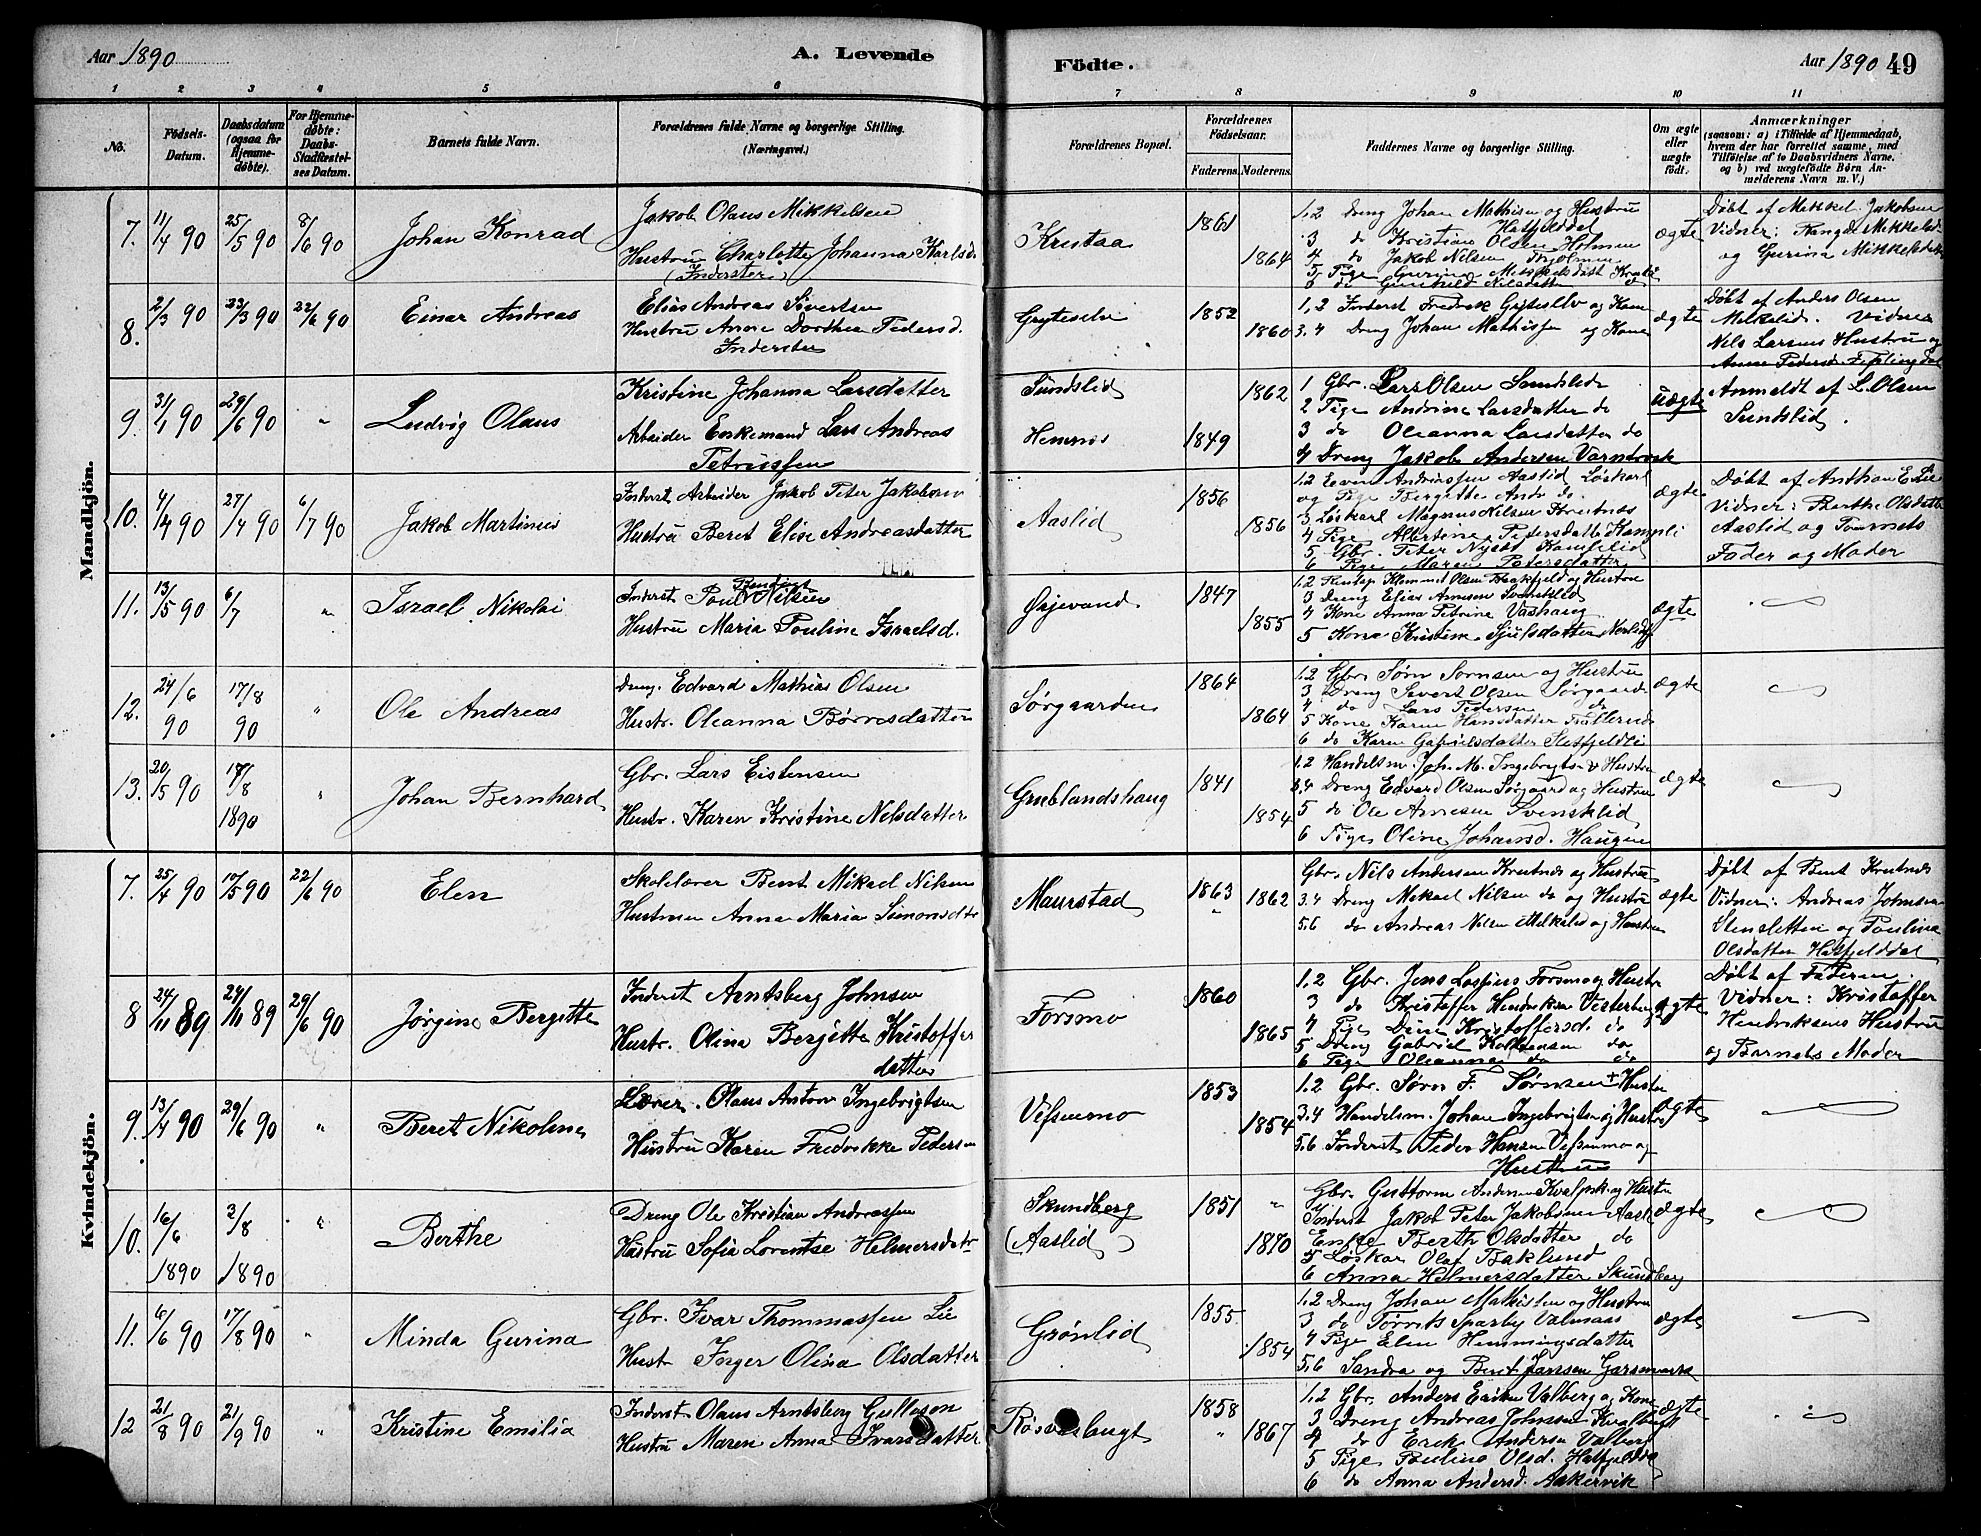 Aar 1890
A. Levende
Födte.
Aar 1890 49
1 2 3 4 5 6 7 8 9 10 11
No.
Födsels-Datum.
Daabsdatum (ogsaa for Hjemme-døbte).
For Hjemme-døbte: Daabs-Stadfæstel-ses Datum.
Barnets fulde Navn.
Forældrenes fulde Navne og borgerlige Stilling.
(Næringsvei.)
Forældrenes Bopæl.
Forældrenes Födselsaar.
Faderens. Moderens.
Faddernes Navne og borgerlige Stilling.
Om ægte eller uægte födt.
Anmærkninger
(saasom: a) i Tilfælde af Hjemmedaab,
hvem der har forrettet samme, med
Tilföielse af to Daabsvidners Navne.
og b) ved uægtefödte Börn An-
melderens Navn m. V.)
Mandkjön.
7. 11/4 90 25/5 90 8/6 90 Johan Konrad
Jakob Olaus Mikkelsen
Hustru Charlotte Johanna Karlsd.
(Inderster)
Krutaa 1861 1864
1,2 Dreng Johan Mathisen og Hustru
Hatfjelddal
3 do Kristian Olsen Holmen
4 do Jakob Nilsen
5 Pige Gurina Mikkelsdatt
do Gunhild Nilsdatter do
ægte
Døbt af Mikkel Jakobsen
Vidner: Mikkelsd.
og Gurina Mikkelsdatt
8. 2/3 90 23/3 90 22/6 90 Einar Andreas
Elias Andreas Sivertsen
Hustru Anne Dorthea Pedersd.
Inderster
Gryteselv 1852 1860
1,2 Inderst Fredrik Gryteselv og Kone
3.4 Dreng Johan Mathissen og Kone
ægte
Døbt af Anders Olsen
Mikkelid. Vidner
Nils Larsens Hustru og
Anne Pedersd.
9. 31/1 90 29/6 90 " Ludvig Olaus
Kristine Johanna Larsdatter
Arbeider Enkemand Lars Andreas
Petrussen
Sundslid 1862
Hemnes 1849
1 Gbr. Lars Olsen Sundslid
2 Pige Andrine Larsdatter do
3 do Oleanna Larsdatter do
4 Dreng Jakob Andersen Varntresk
uægte
Anmeldt af L. Olsen
Sundslid.
10. 4/4 90 27/4 90 6/7 90 Jakob Martinus
Inderst Arbeider Jakob Peter Jakobsen
Hustru Beret Elise Andreasdatter
Aaslid 1856 1856
1.2 Andreassen Aaslid Løskarl
og Pige Bergitte Andr. do.
3 Løskarl Magnus Nilsen Krutnæs
4 Pige Albertine Pedersdatter
5 Gbr. Peter
6 Pige Maren Petersdatter
ægte
Døbt af
Vidner: Berthe Olsdatter
Aaslid og Barnets
Fader og Moder
11. 13/5 90 6/7 " Israel Nikolai
Inderst Poul Bendigt Nilsen
Hustru Maria Pouline Israelsd.
Ørjevand 1847 1855
1.2 Klemmet Olsen og Hustru
3 Dreng Elias Arnesen Svensklid
4 Kone Anna Petrine Vashaug
5 Kone Kristine Sjulsdatter
ægte
12. 24/6 90 17/8 90 " Ole Andreas
Dreng Edvard Mathias Olsen
Hustr. Oleanna Børresdatter
Sørgaarden 1864 1864
1.2 Gbr. Sørn Sørnsen og Hustru
3 Dreng Sivert Olsen Sørgaard
4 do Lars Pedersen do
5 Kone Karen Hansdatter
6 do Karen Gabrielsdatter
ægte
13. 20/5 90 17/8 1890 " Johan Bernhard
Gbr. Lars Eistensen
Hustr. Karen Kristine Nilsdatter
Grublandshaug 1841 1854
1.2 Handelsm. Joh. M. Ingebrigtsen & Hustru
3.4 Dreng Edvard Olsen Sørgaard og Hustru
5 do Ole Arnesen Svensklid
6 Pige Oline Johansd. Haugen
ægte
Kvindekjön.
7. 25/4 90 17/5 90 22/6 90 Elen
Skolelærer Bent Mikael Nilsen
Hustruen Anna Maria Simonsdtr
Maurstad 1863 1862
Gbr. Nils Andersen Krutnæs og Hustru
3.4 Dreng Mikael Nilsen do og Hustru
5.6 do Andreas Nilsen og Hustru
ægte
Døbt af Bent Krutnæs
Vidner: Andreas Johnsen
Stensletten og Paulina
Olsdatter Hatfjelddal
8 24/11 89 24/11 89 29/6 90 Jørgine Bergitte
Inderst Arntsberg Johnsen
Hustr. Olina Bergitte Kristoffer
datter
Forsmo 1860 1865
1.2 Gbr. Jens Forsmo og Hustr
3 do Kristoffer Hendriksen
4 Pige Kristoffersd. do
5 Dreng Gabriel do
6 Pige Oleanna do do
ægte
Døbt af Faderen.
Vidner: Kristoffer
Hendriksens Hustru
og Barnets Moder
9. 13/4 90 29/6 90 " Beret Nikoline
Lærer. Olaus Anton Ingebrigtsen
Hustru Karen Fredrikke Pedersen
Vefsenmo 1853 1854
1.2 Gbr. Sørn F. Sørnsen + Hustru
3.4 Handelsm. Johan Ingebrigtsen og Hustru
5.6 Inderst Peder Hansen Vefsenmo og
Hustru
ægte
10. 16/6 1890 3/8 1890 " Berthe
Dreng Ole Kristian Andreassen
Hustru Sofia Lorentse Helmersdatr
Skundberg
(Aaslid) 1851 " 1870
Gbr. Guttorm Andersen og Hustru
Inderst Jakob Peter Jakobsen Aaslid
Enke Berth Olsdatter do
5 Løskar Olaf Baklund
6 Anna Helmersdatter Skundberg
ægte
11. 6/6 90 17/8 90 " Minda Gurina
Gbr. Ivar Thommassen Lie
Hustr Inger Olina Olsdatter
Grønlid 1855. 1854
1.2 Dreng Johan Mathisen og Hustru
3 do Sparby
4 Pige Elen Hemmingsdatter
5.6 Sandra og Bent Jansen
ægte
12 21/8 90 21/9 90 " Kristine Emilia
Inderst Olaus Arntsberg Gulleson
Hustru Maren Anna Ivarsdatter
Røsvasbugt 1858 " 1867
1.2 Gbr. Anders Eriksen Valberg og Kone
3 Dreng Andreas Johnsen
4 do Erik Andersen Valberg
5 Pige Paulina Olsd. Hatfjelddal
6 do Anna Andersd. Aakervik
ægte